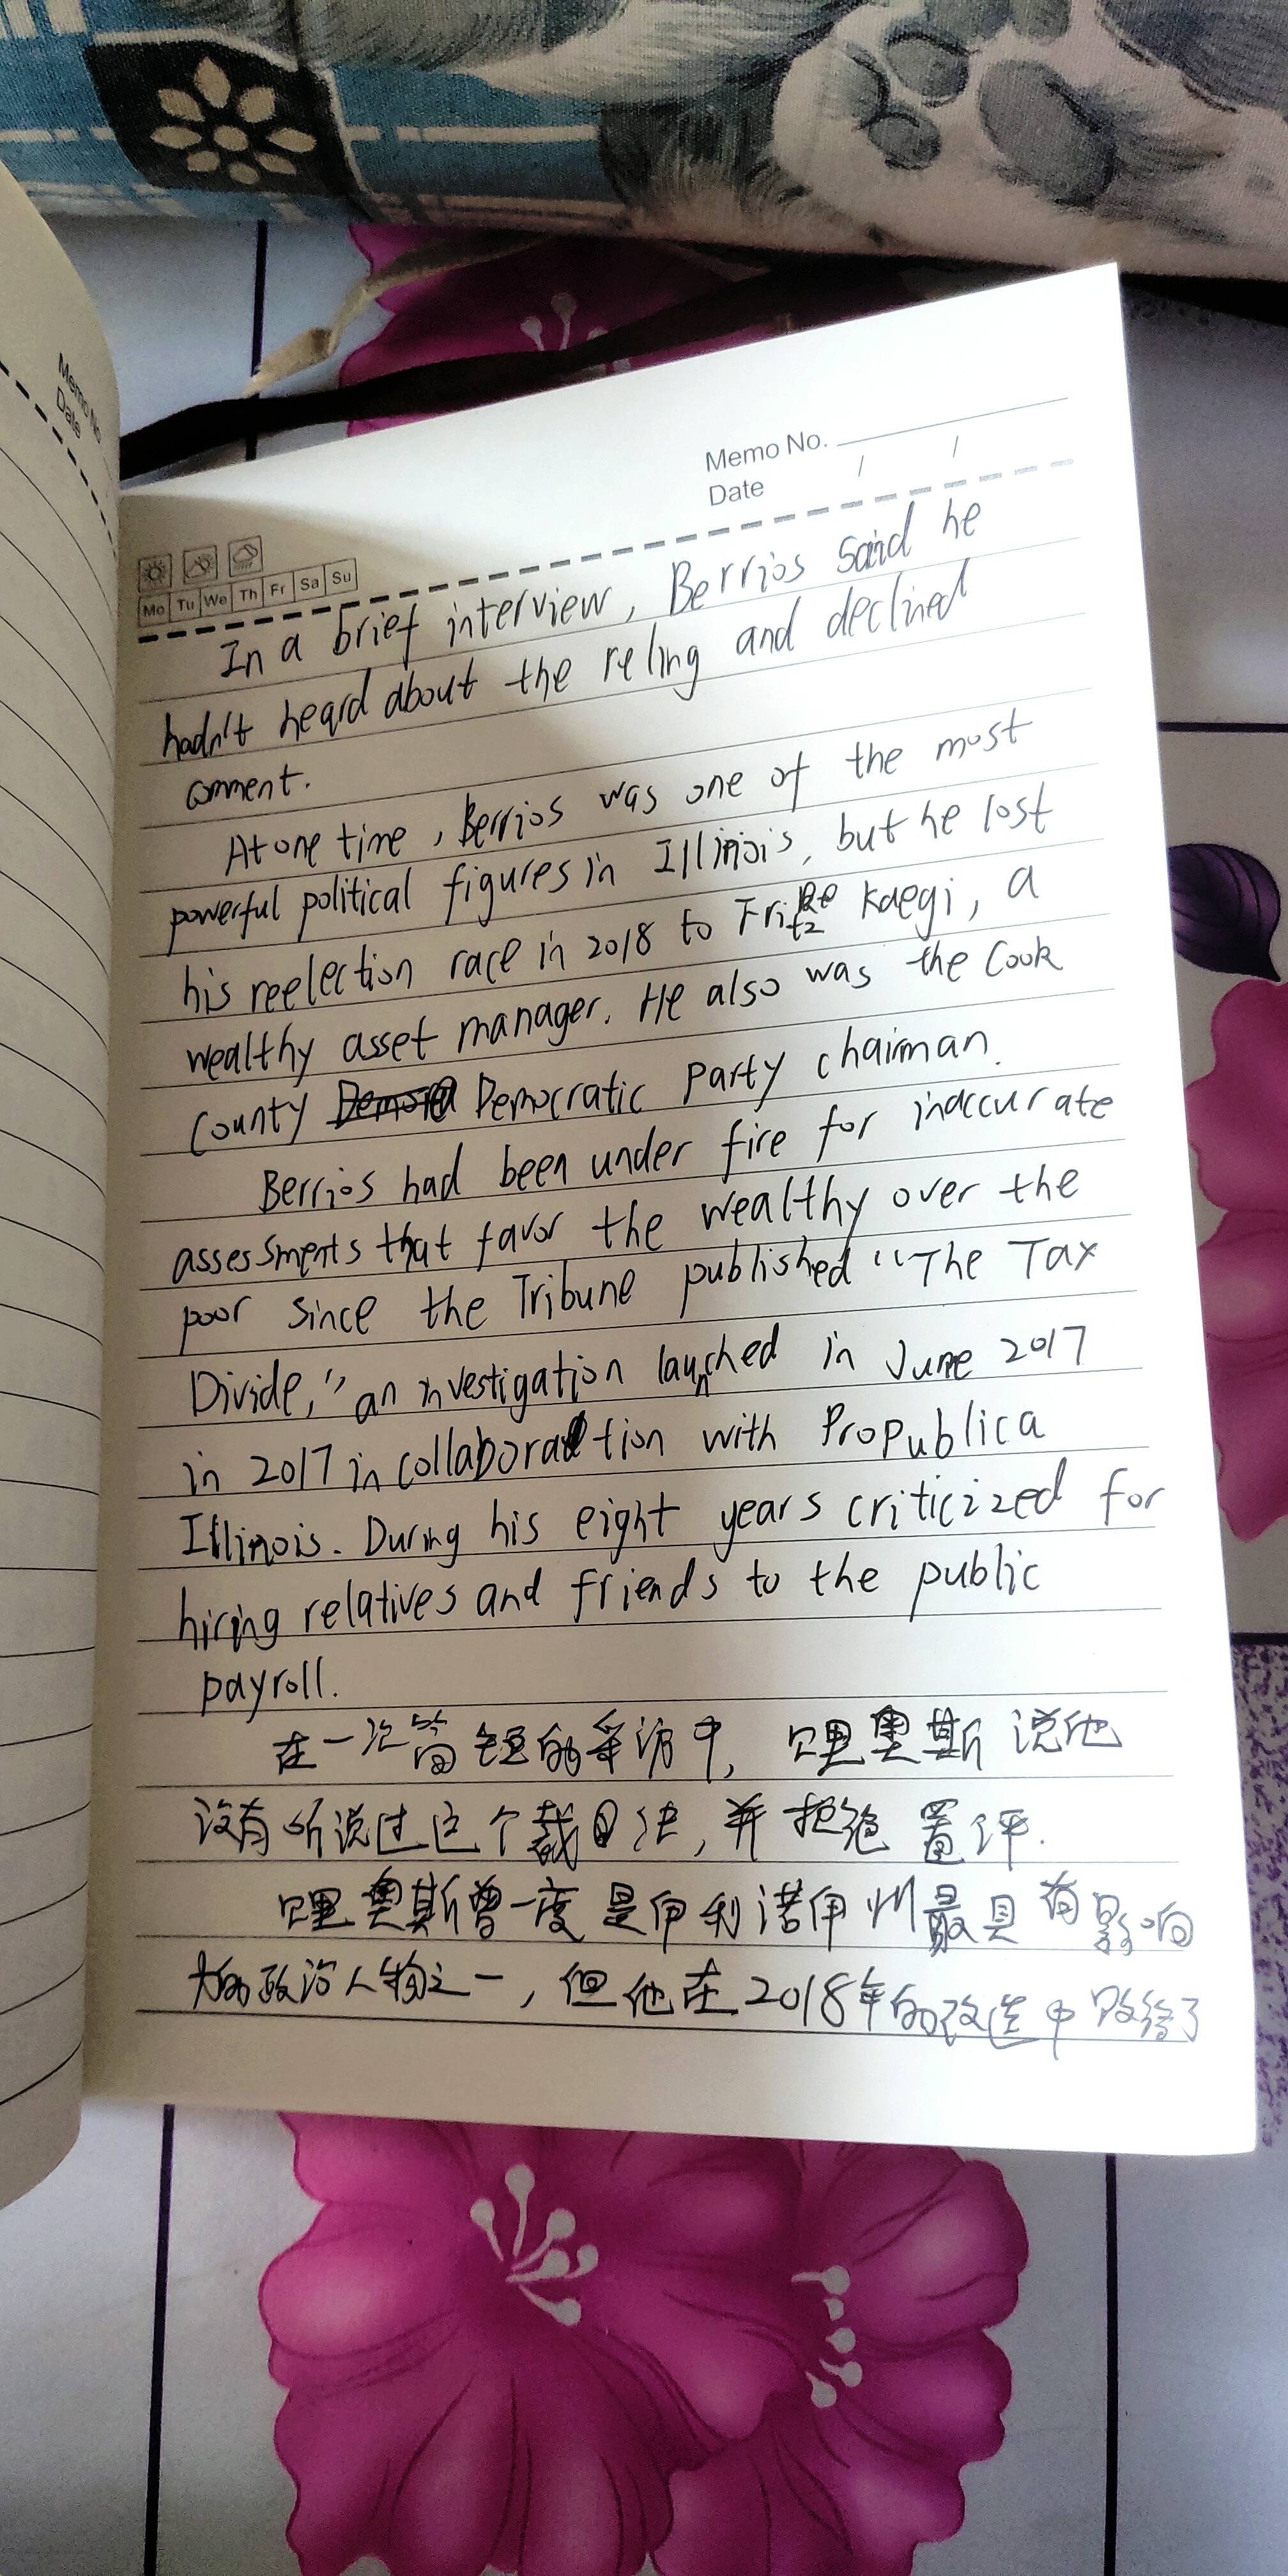 Memo No.
Date
Memo No.
Date / /
Mo Tu We Th Fr Sa Su
In a brief interview, Berrios said he
hadn't heard about the reling and declined
comment.
At one time, Berrios was one of the most
powerful political figures in Illinois, but he lost
his reelection race in 2018 to Fritz Kaegi, a
wealthy asset manager. He also was the Cook
County Democratic Party chairman.
Berrios had been under fire for inaccurate
assessments that favor the wealthy over the
poor since the Tribune published "The Tax
Divide," an investigation launched in June 2017
in 2017 in collaboration with ProPublica
Illinois. During his eight years criticized for
hiring relatives and friends to the public
payroll.
在一次简短的采访中, 哩奥斯说他
没有听说过这个裁决, 并拒绝置评.
哩奥斯曾一度是伊利诺伊州最具有影响
的政治人物之一, 但他在2018年的改选中败给了